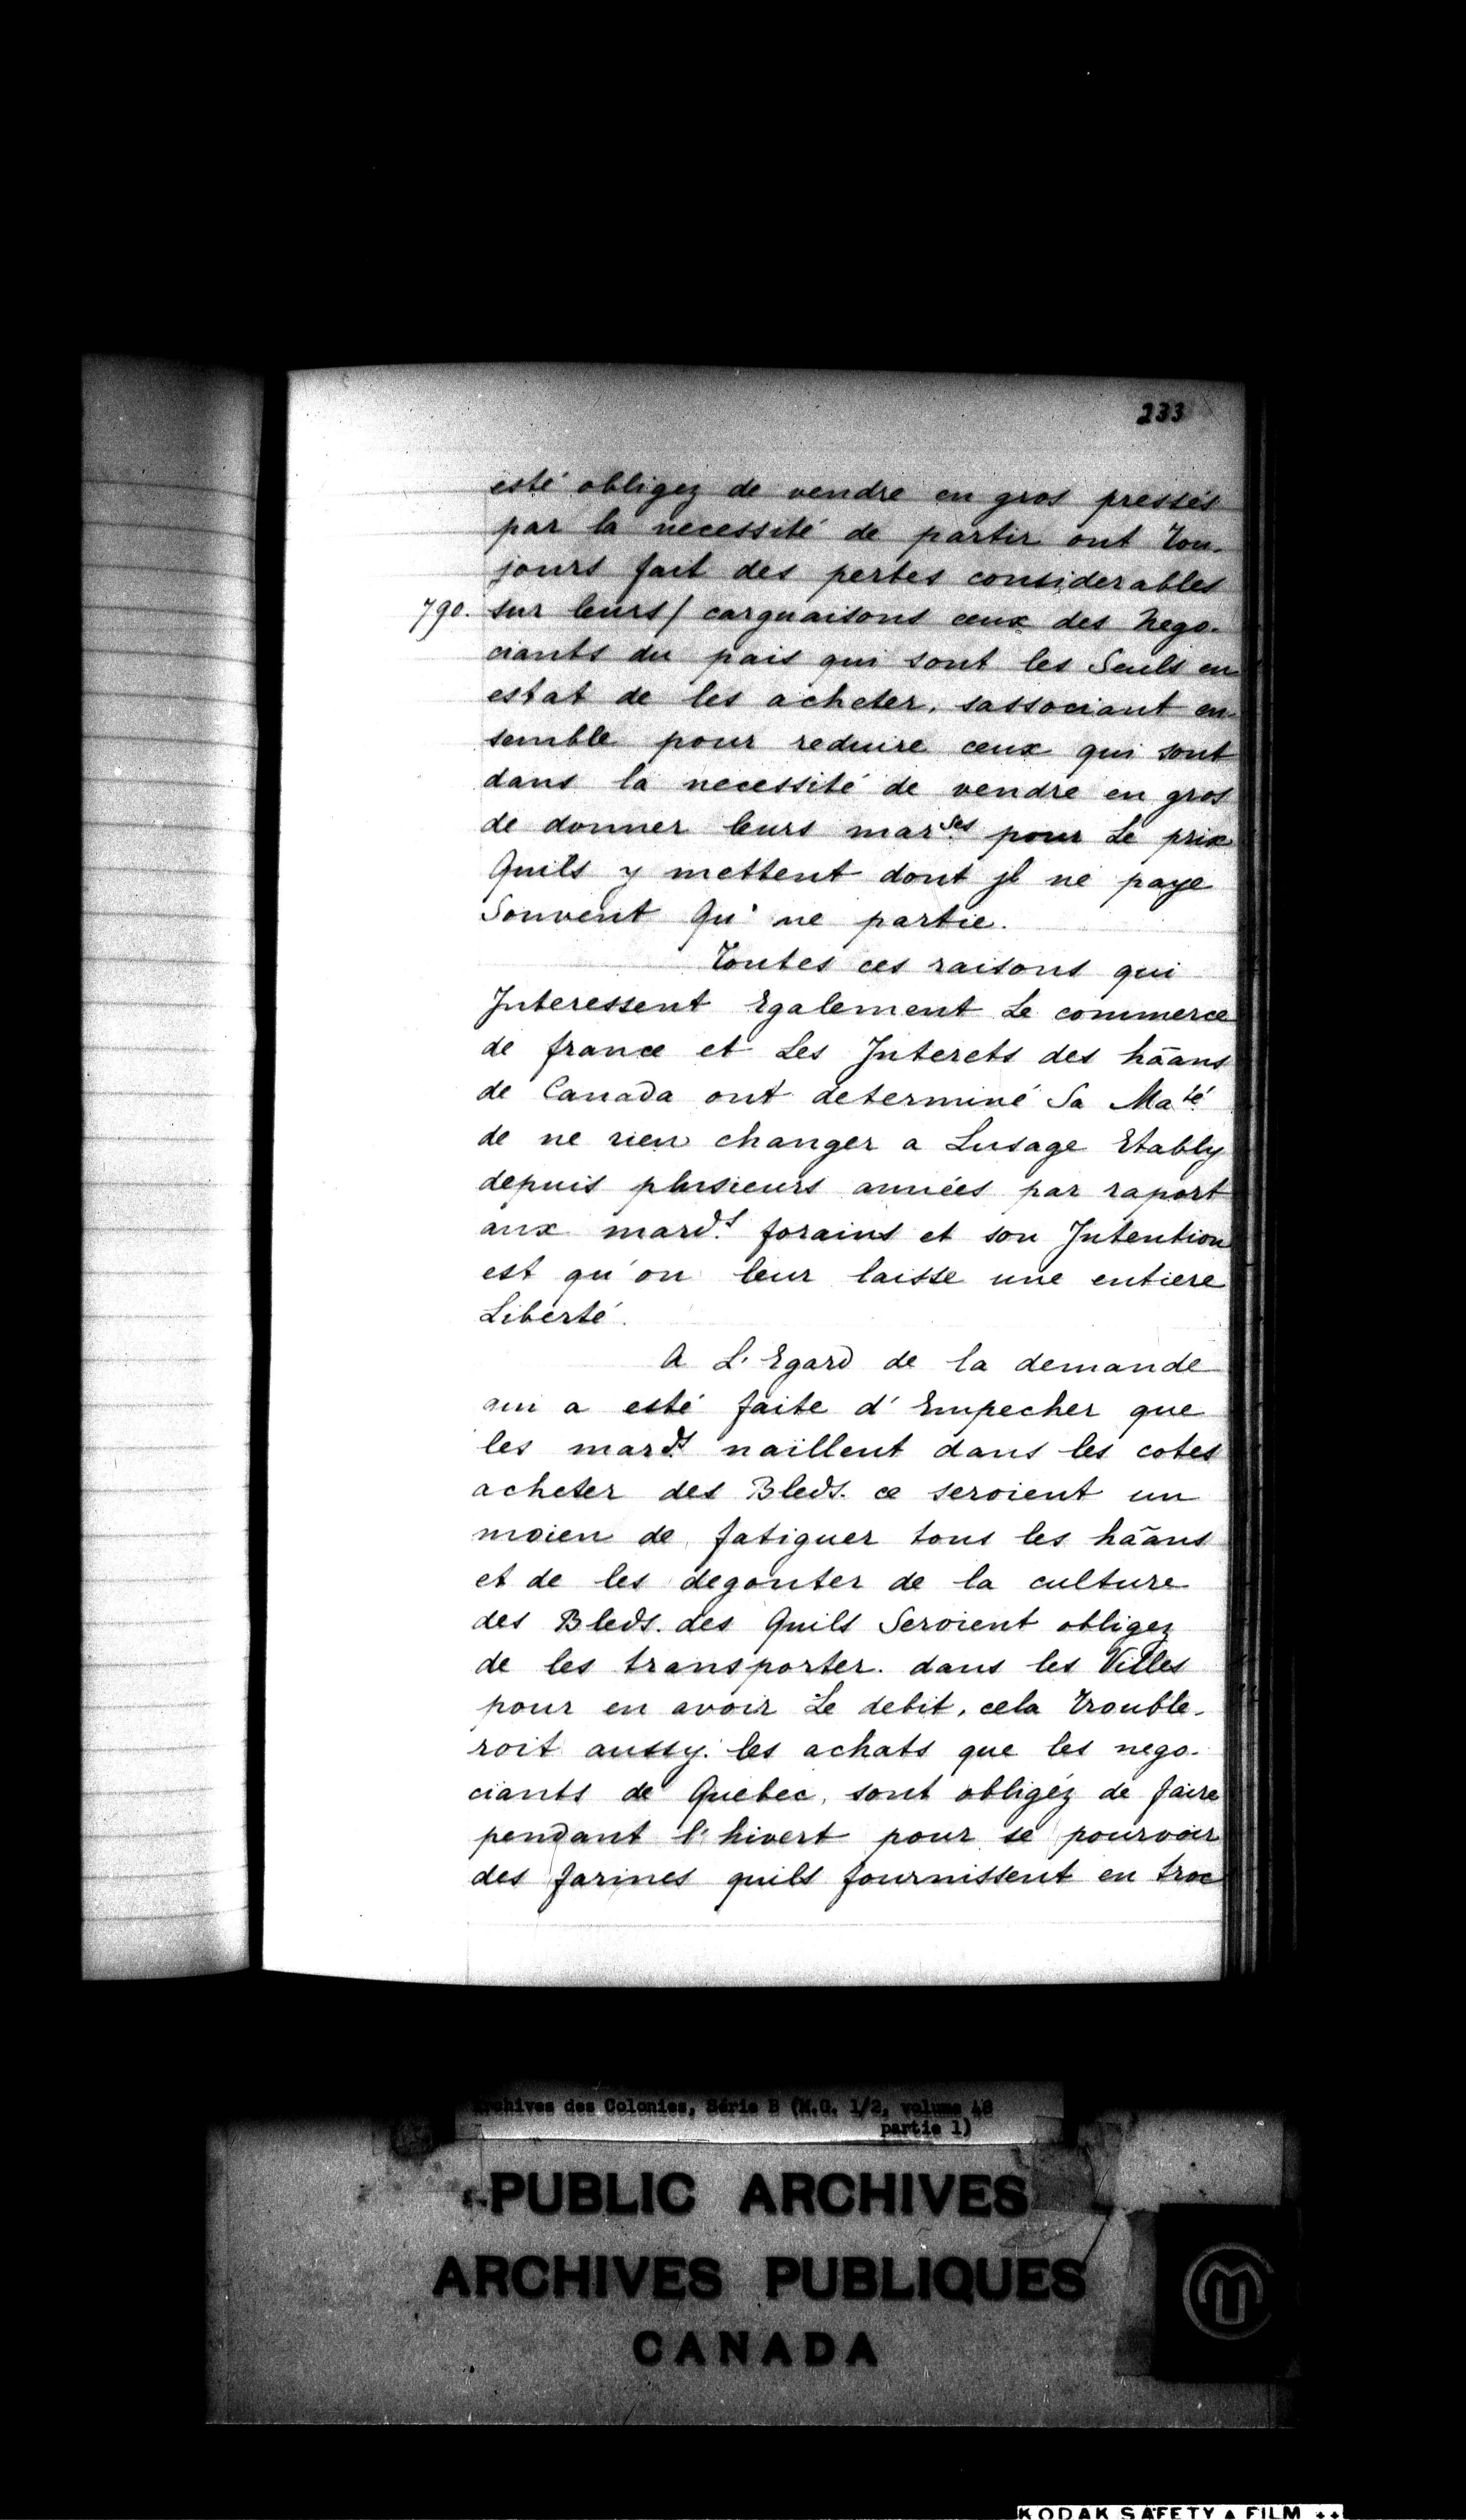 233
esté obligez de vendre en gros pressés
par la necessité de partir ont Tou-
jours fait des pertes considerables
790. sur leurs/ carguaisons ceux des Nego-
ciants du pais qui sont les Seuls en
estat de les acheter, sassociant en
semble pour reduire ceux qui sont
dans la necessité de vendre en gros
de donner leurs mar.ses pour Le prix
Quils y mettent dont jl ne paye
Souvent Qu'ne partie.
Toutes ces raisons qui
Interessent Egalement Le commerce
de france et Les Interets des hãans
de Canada ont determiné Sa Ma.té
de ne rien changer a Lusage Etably
depuis plusieurs années par raport
aux mard.s forains et son Intention
est qu'on leur laisse une entiere
Liberté.
A L'Egard de la demande
qui a esté faite d'Empecher que
les mard.s naillent dans les cotes
acheter des Bleds. ce seroient un
moien de fatiguer tous les hãans
et de les degouter de la culture
des Bleds. des Quils Seroient obligez
de les transporter. dans les Villes
pour en avoir Le debit, cela Trouble-
roit aussy. les achats que les nego-
ciants de Quebec, sont obligéz de faire
pendant l'hivert pour se pourvoir
des farines quils fournissent en troc
Archives des Colonies, Série B (M.G. 1/2, volume 48
partie 1)
PUBLIC ARCHIVES
ARCHIVES PUBLIQUES
CANADA
KODAK SAFETY ▲ FILM ++